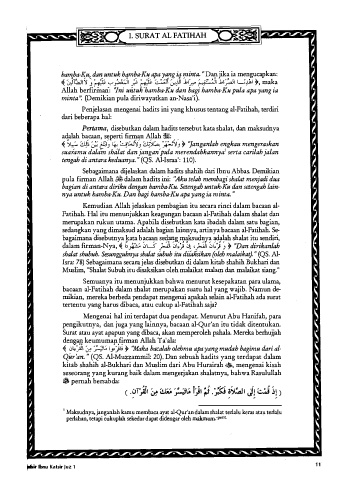 1. SURAT AL FATIHAH
hamba-Ku, dan untuk hamba-Ku apa yang ia minta." Dan jika ia mengucapkan:
﴿ اهْدِنَا الصِّرَاطَ الْمُسْتَقِيمَ صِرَاطَ الَّذِينَ أَنْعَمْتَ عَلَيْهِمْ غَيْرِ الْمَغْضُوبِ عَلَيْهِمْ وَلَا الضَّالِّينَ ﴾, maka
Allah berfirman: "Ini untuk hamba-Ku dan bagi hamba-Ku pula apa yang ia
minta". (Demikian pula diriwayatkan an-Nasa'i).
Penjelasan mengenai hadits ini yang khusus tentang al-Fatihah, terdiri
dari beberapa hal:
Pertama, disebutkan dalam hadits tersebut kata shalat, dan maksudnya
adalah bacaan, seperti firman Allah ﷻ:
﴿ وَلَا تَجْهَرْ بِصَلَاتِكَ وَلَا تُخَافِتْ بِهَا وَابْتَغِ بَيْنَ ذَلِكَ سَبِيلًا ﴾ "Janganlah engkau mengeraskan
suaramu dalam shalat dan jangan pula merendahkannya¹ serta carilah jalan
tengah di antara keduanya." (QS. Al-Israa': 110).
Sebagaimana dijelaskan dalam hadits shahih dari Ibnu Abbas. Demikian
pula firman Allah ﷻ dalam hadits ini: "Aku telah membagi shalat menjadi dua
bagian di antara diriku dengan hamba-Ku. Setengah untuk-Ku dan setengah lain-
nya untuk hamba-Ku. Dan bagi hamba-Ku apa yang ia minta."
Kemudian Allah jelaskan pembagian itu secara rinci dalam bacaan al-
Fatihah. Hal itu menunjukkan keagungan bacaan al-Fatihah dalam shalat dan
merupakan rukun utama. Apabila disebutkan kata ibadah dalam satu bagian,
sedangkan yang dimaksud adalah bagian lainnya, artinya bacaan al-Fatihah. Se-
bagaimana disebutnya kata bacaan sedang maksudnya adalah shalat itu sendiri,
dalam firman-Nya, ﴿ وَقُرْآنَ الْفَجْرِ إِنَّ قُرْآنَ الْفَجْرِ كَانَ مَشْهُودًا ﴾ "Dan dirikanlah
shalat shubuh. Sesungguhnya shalat subuh itu disaksikan (oleh malaikat)." (QS. Al-
Israa: 78) Sebagaimana secara jelas disebutkan di dalam kitab shahih Bukhari dan
Muslim, "Shalat Subuh itu disaksikan oleh malaikat malam dan malaikat siang."
Semuanya itu menunjukkan bahwa menurut kesepakatan para ulama,
bacaan al-Fatihah dalam shalat merupakan suatu hal yang wajib. Namun de-
mikian, mereka berbeda pendapat mengenai apakah selain al-Fatihah ada surat
tertentu yang harus dibaca, atau cukup al-Fatihah saja?
Mengenai hal ini terdapat dua pendapat. Menurut Abu Hanifah, para
pengikutnya, dan juga yang lainnya, bacaan al-Qur'an itu tidak ditentukan.
Surat atau ayat apapun yang dibaca, akan memperoleh pahala. Mereka berhujjah
dengan keumuman firman Allah Ta'ala:
﴿ فَاقْرَءُوا مَا تَيَسَّرَ مِنَ الْقُرْآنِ ﴾ "Maka bacalah olehmu apa yang mudah bagimu dari al-
Qur'an." (QS. Al-Muzzammil: 20). Dan sebuah hadits yang terdapat dalam
kitab shahih al-Bukhari dan Muslim dari Abu Hurairah ؓ, mengenai kisah
seseorang yang kurang baik dalam mengerjakan shalatnya, bahwa Rasulullah
ﷺ pernah bersabda:
( إِذَا قُمْتَ إِلَى الصَّلَاةِ فَكَبِّرْ. ثُمَّ اقْرَأْ مَا تَيَسَّرَ مَعَكَ مِنَ الْقُرْآنِ. )
¹ Maksudnya, janganlah kamu membaca ayat al-Qur'an dalam shalat terlalu keras atau terlalu
perlahan, tetapi cukuplah sekedar dapat didengar oleh makmum.
Ibnu Katsir Juz 1
11